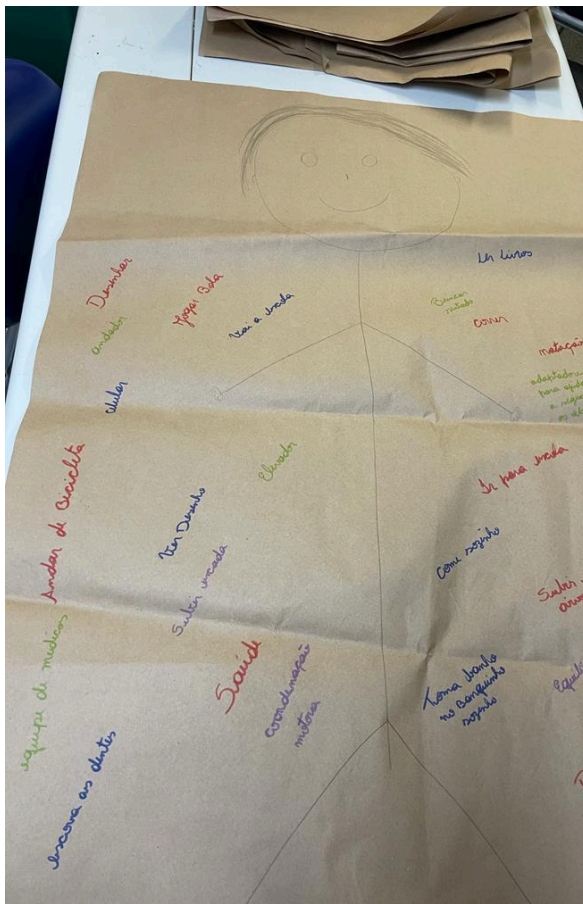 Desenhar
andador
Jogar Bola
Vai a escola
Ler livros
Brincar
sentado
correr
natação
adaptador
para
a
celular
Elevador
Andar de Bicicleta
Ver Desenho
Subir escada
Ir para escola
Come sozinho
Subir
equipe de médicos
Saúde
coordenação
motora
Toma banho
no Banquinho
sozinho
escova os dentes